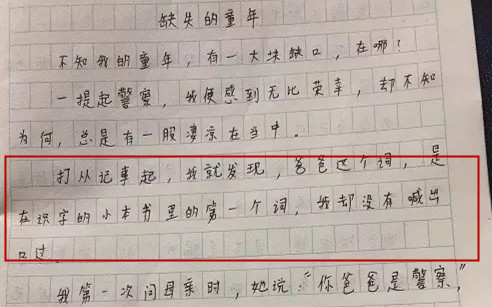 缺失的童年
不知我的童年，有一大块缺口，在哪？
一提起警察，我便感到无比荣幸，却不知
为何，总是有一股凄凉在当中。
打从记事起，我就发现，爸爸这个词，是
在识字的小本书里的第一个词，我却没有喊出
口过。
我第一次问母亲时，她说："你爸爸是警察，"